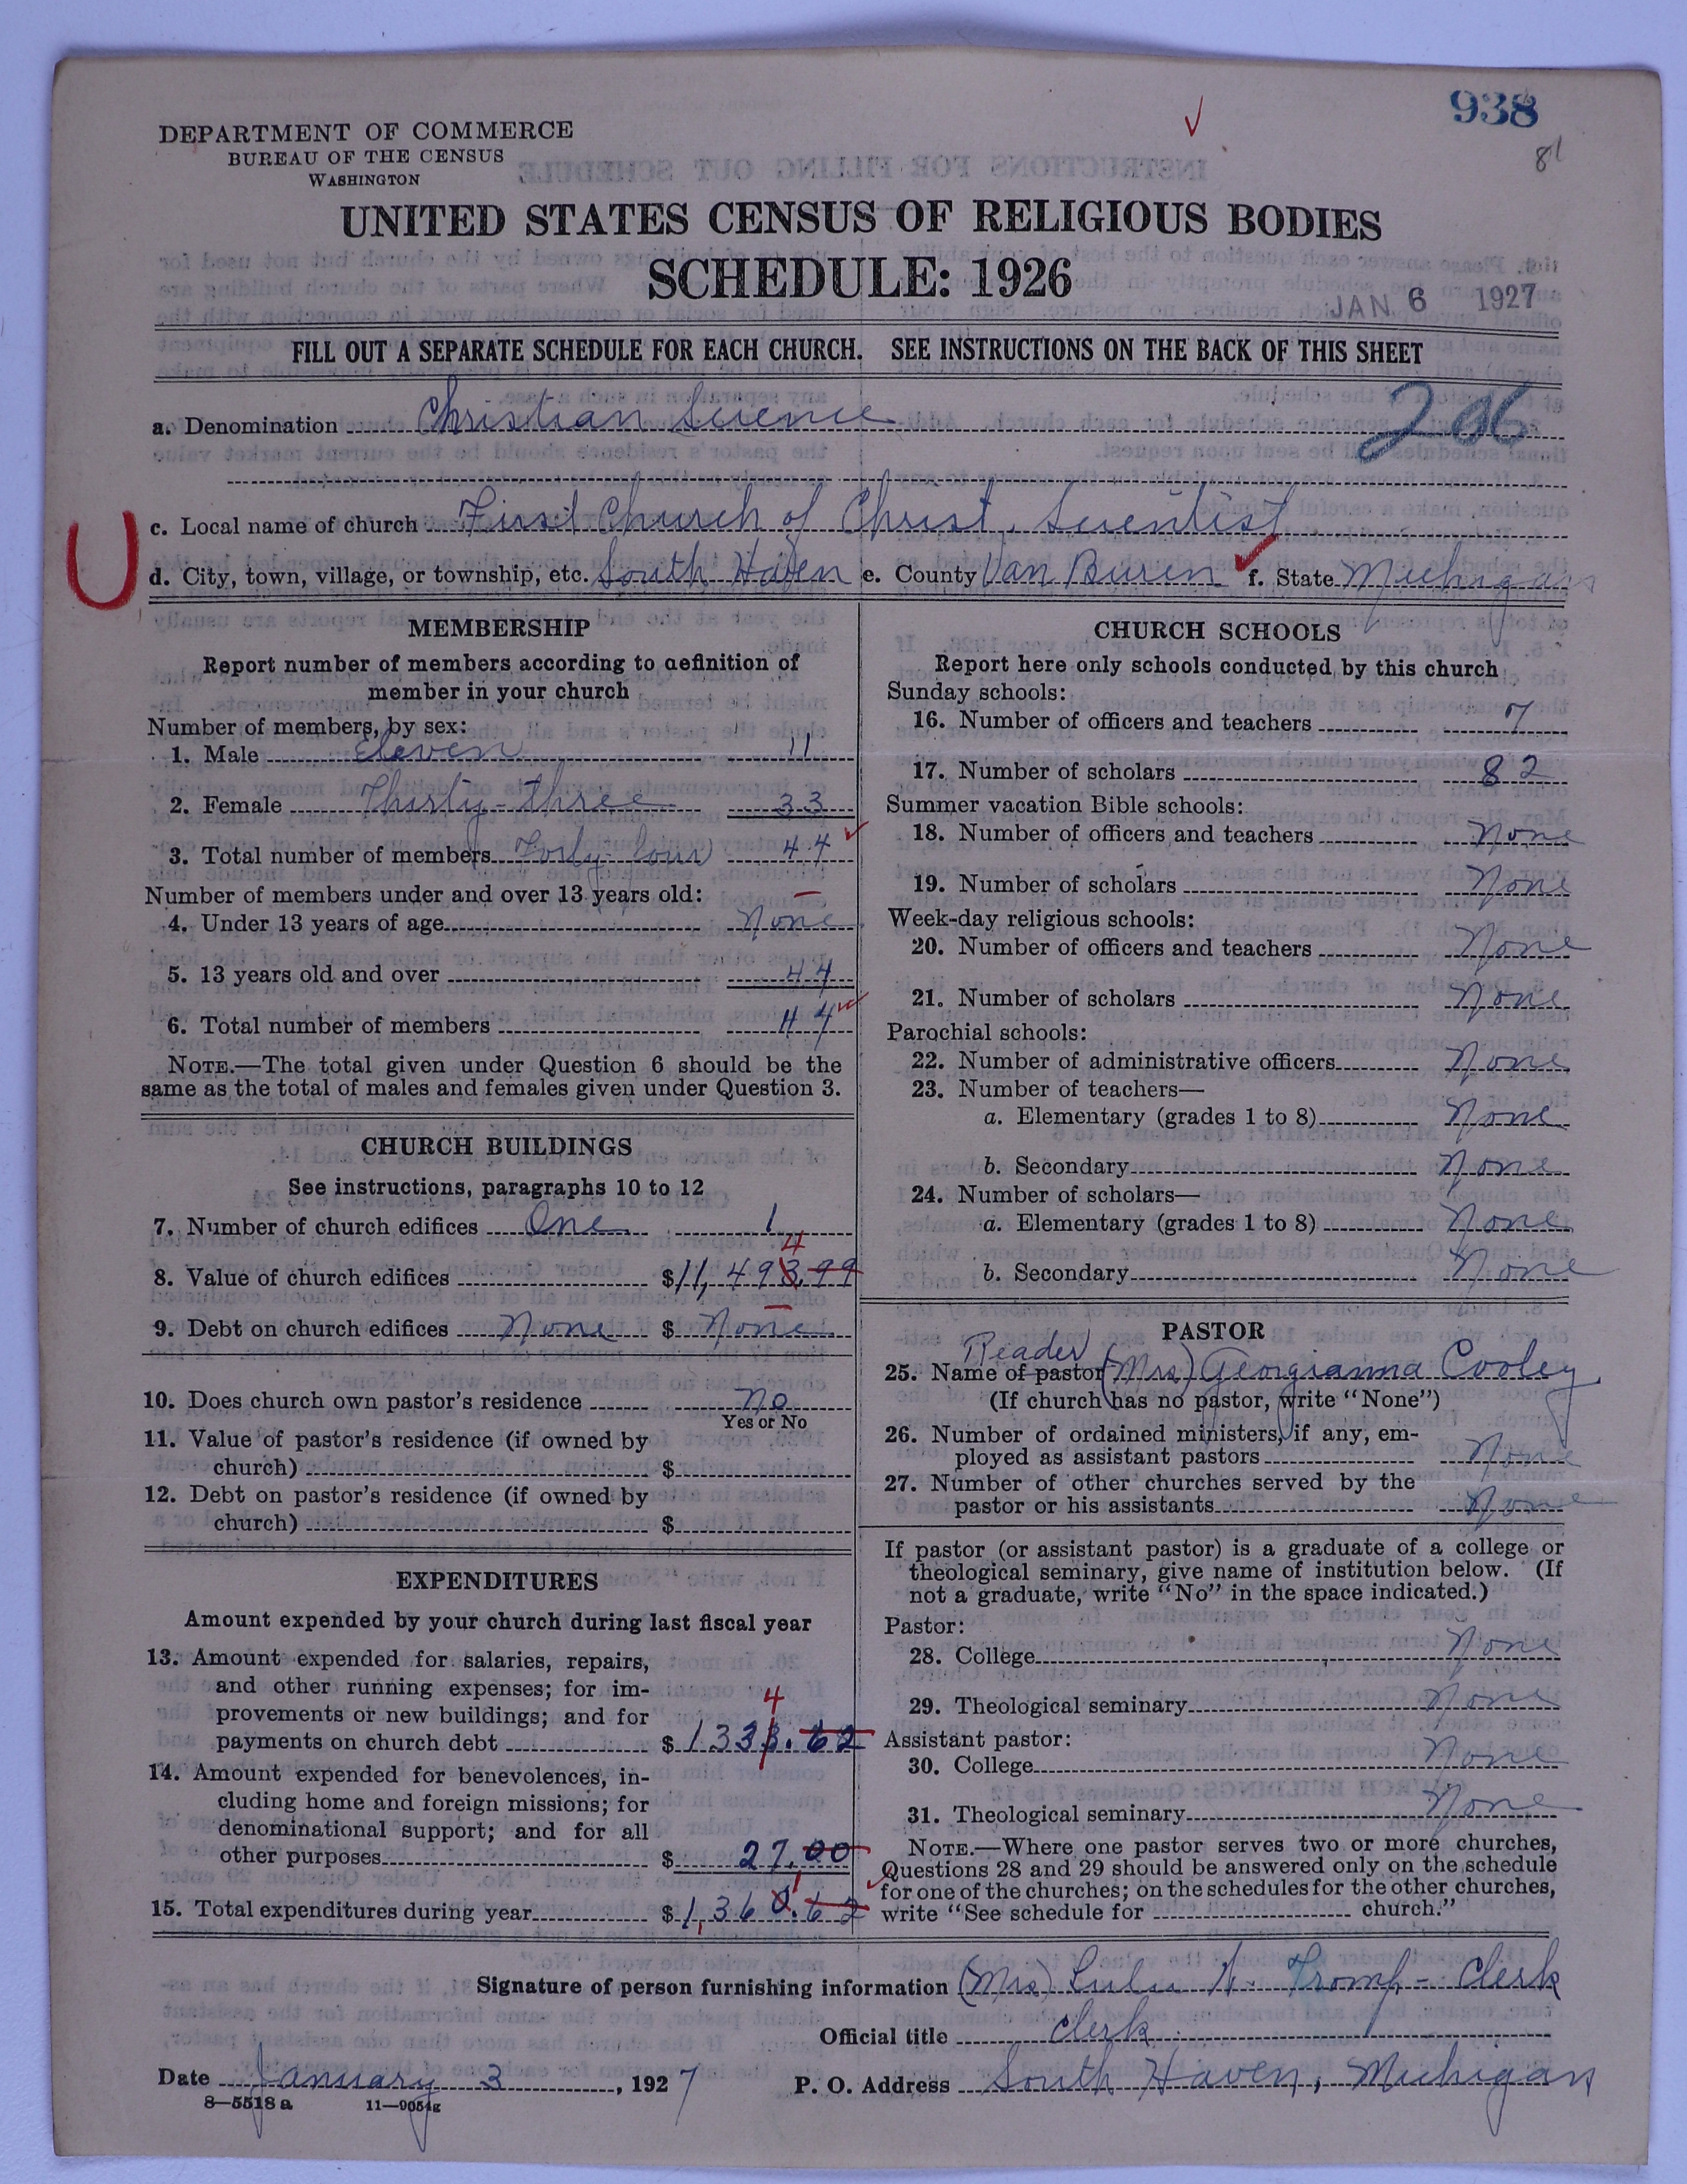 938
81
DEPARTMENT OF COMMERCE
BUREAU OF THE CENSUS
WASHINGTON
UNITED STATES CENSUS OF RELIGIOUS BODIES
SCHEDULE: 1926
JAN 6 1927
FILL OUT A SEPARATE SCHEDULE FOR EACH CHURCH. SEE INSTRUCTIONS ON THE BACK OF THIS SHEET
a. Denomination Christian Science
206
c. Local name of church First Church of Christ, Scientist
U
d. City, town, village, or township, etc. South Haven e. County Van Buren f. State Michigan
MEMBERSHIP
Report number of members according to definition of
member in your church
Number of members, by sex:
1. Male Eleven 11
2. Female Thirty-three 33
3. Total number of members Forty-four 44
Number of members under and over 13 years old:
4. Under 13 years of age None
5. 13 years old and over 44
6. Total number of members 44
NOTE.—The total given under Question 6 should be the
same as the total of males and females given under Question 3.
CHURCH BUILDINGS
See instructions, paragraphs 10 to 12
7. Number of church edifices One 1
4
8. Value of church edifices $11,493.99
9. Debt on church edifices None $ None
10. Does church own pastor's residence No
Yes or No
11. Value of pastor's residence (if owned by
church) $
12. Debt on pastor's residence (if owned by
church) $
EXPENDITURES
Amount expended by your church during last fiscal year
13. Amount expended for salaries, repairs,
and other running expenses; for im-
provements or new buildings; and for
4
payments on church debt $1333.62
14. Amount expended for benevolences, in-
cluding home and foreign missions; for
denominational support; and for all
other purposes $ 27.00
1
15. Total expenditures during year $1,360.62
CHURCH SCHOOLS
Report here only schools conducted by this church
Sunday schools:
16. Number of officers and teachers 7
17. Number of scholars 82
Summer vacation Bible schools:
18. Number of officers and teachers None
19. Number of scholars None
Week-day religious schools:
20. Number of officers and teachers None
21. Number of scholars None
Parochial schools:
22. Number of administrative officers None
23. Number of teachers—
a. Elementary (grades 1 to 8) None
b. Secondary None
24. Number of scholars—
a. Elementary (grades 1 to 8) None
b. Secondary None
PASTOR
Reader
25. Name of pastor (Mrs) Georgianna Cooley
(If church has no pastor, write "None")
26. Number of ordained ministers, if any, em-
ployed as assistant pastors None
27. Number of other churches served by the
pastor or his assistants None
If pastor (or assistant pastor) is a graduate of a college or
theological seminary, give name of institution below. (If
not a graduate, write "No" in the space indicated.)
Pastor:
28. College None
29. Theological seminary None
Assistant pastor:
30. College None
31. Theological seminary None
NOTE.—Where one pastor serves two or more churches,
Questions 28 and 29 should be answered only on the schedule
for one of the churches; on the schedules for the other churches,
write "See schedule for church."
Signature of person furnishing information (Mrs) Lulu Tromp - Clerk
Official title Clerk
Date January 3, 1927 P. O. Address South Haven, Michigan
8—5518 a 11—9051g